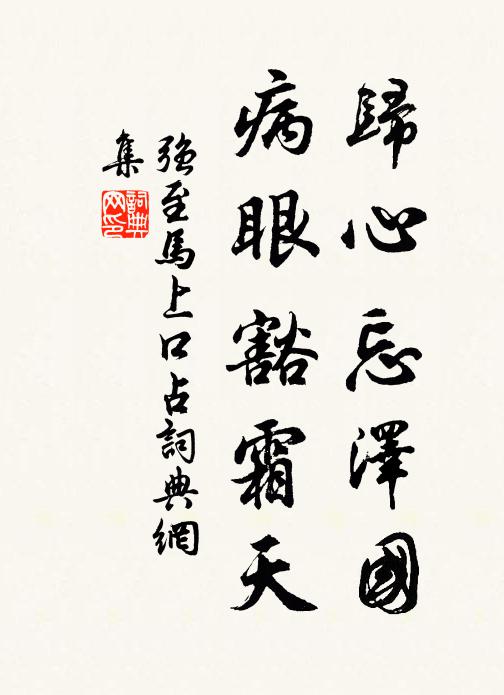 歸心忘澤國
病眼豁霜天
強至馬上口占詞典網
集
詞典
网印